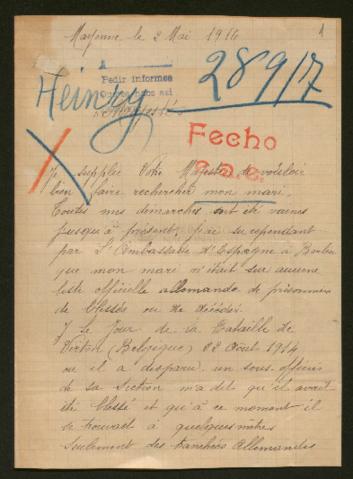 Mayenne le 2 Mai 1916
1
A
Pedir informes
28917
Heinry
Majesté
Fecho
Je supplie Votre Majesté de vouloir
bien faire rechercher mon mari.
Toutes mes démarches ont été vaines
jusqu'à présent, j'ai su cependant
par l'Embassade d'Espagne à Berlin
que mon mari n'était sur aucune
liste officielle allemande de prisonniers
de blessés ou de décédés.
le jour de la Bataille de
Virton (Belgique) 22 Août 1914
ou il a disparu, un sous-officier
de sa Section m'a dit qu'il avait
été blessé et qu'à ce moment il
se trouvait à quelques mètres
seulement des tranchées Allemandes